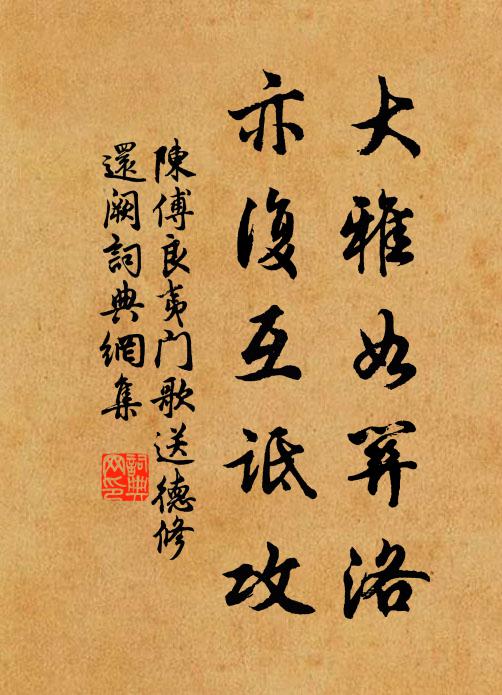 大雅如關洛
亦復互詆攻
陳傅良夷門歌送德修
還闕詞典網集
詞典
网印